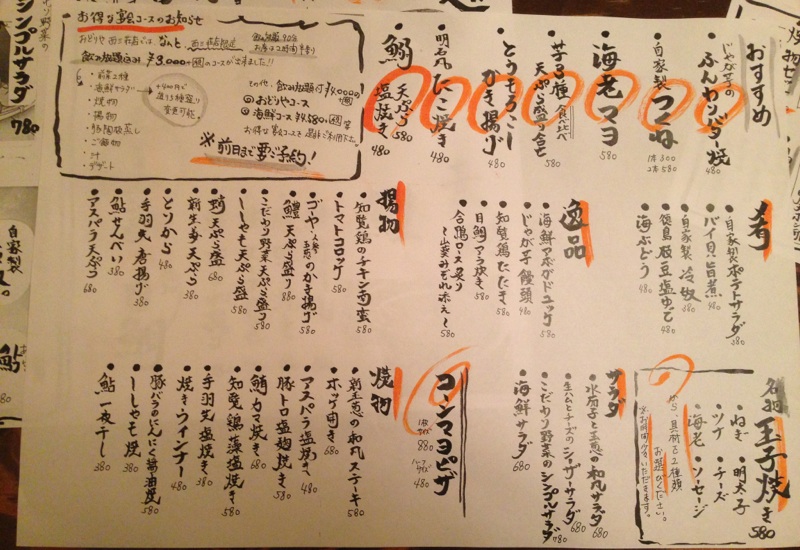 おすすめ
じゃが芋のふんわりバター焼 480
自家製つくね 1本300 2本580
海老マヨ 580
芋3種 食べ比べ 天ぷら盛り合せ 580
とうもろこしかき揚げ 480
明石風たこ焼き 480
鰯 天ぷら 580 塩焼き 480
お得な宴会コースのお知らせ
なんと
飲み放題90分
飲み放題込み ¥3,000 のコースが出来ました!!
・前菜2種
・海鮮サラダ
・焼物
・揚物
・ご飯物
・汁
・デザート
その他、飲み放題付 ¥4,000
おどりやコース
海鮮コース ¥4,580
※前日まで要ご予約!
肴
自家製ポテトサラダ 580
バイ貝旨煮 480
自家製冷奴 380
徳島枝豆塩ゆで 480
海ぶどう 480
逸品
海鮮アボガドユッケ 580
じゃが芋饅頭 480
知覧鶏たたき 580
目鯛アラ炊き 580
合鴨ロース炙り 〜山葵みぞれ添え〜 580
揚物
知覧鶏のチキン南蛮 580
トマトコロッケ 580
ゴーヤ、人参、玉葱のかき揚げ 580
鱧天ぷら盛り 880
こだわり野菜天ぷら盛り 580
ししゃも天ぷら盛 580
鞘天ぷら盛 680
新生姜天ぷら 380
とりから 480
手羽先唐揚げ 380
鮎せんべい 380
アスパラ天ぷら 680
名物 玉子焼き 580
・ねぎ ・明太子
・ツナ ・チーズ
・海老 ・ソーセージ
から、具材を2種類
お選びください。
※お時間少々いただきます。
サラダ
水茄子と玉葱の和風サラダ 680
生ハムとチーズのシーザーサラダ 680
こだわり野菜のシンプルサラダ 780
海鮮サラダ 680
コーンマヨピザ 880 480
焼物
新玉葱の和風ステーキ 580
ホッケ開き 480
アスパラ塩焼き 480
豚トロ塩麹焼き 580
鮪カマ焼き 680
知覧鶏藻塩焼き 580
手羽先塩焼き 380
焼きウインナー 480
豚バラのにんにく醤油焼 580
ししゃも焼 380
鮎一夜干し 380
シンプルサラダ 780
自家製
鮎
焼物